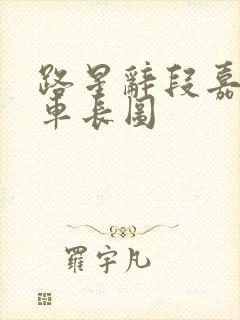 路星辭段嘉
車長圖
羅宇凡